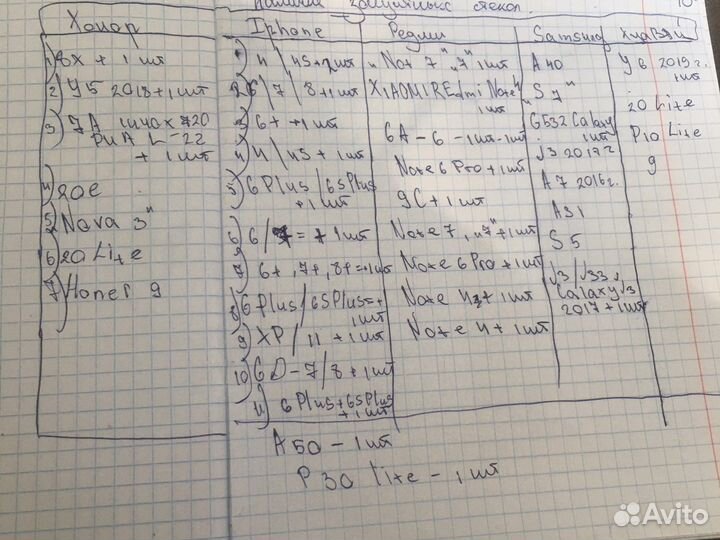 защитных стекол
Хонор
1) 8X + 1 шт
2) Y5 2018 + 1 шт
3) 7A 1440 x 720
DUA L-22
+ 1 шт
4) 20e
5) Nova 3"
6) 20 Lite
7) Honer 9
Iphone
1) 4 | 4S + 2шт
2) 6 | 7 | 8 + 1 шт
3) 6+ + 1 шт
4) 4 | 4S + 1 шт
5) 6 Plus / 6SPlus
+ 1 шт
6) 6 / 7 = + 1 шт
7) 6+, 7+, 8+ = 1 шт
8) 6 Plus / 6SPlus = +
1 шт
9) XP / 11 + 1 шт
10) 6D - 7 / 8 + 1 шт
11) 6 Plus + 6SPlus
+ 1 шт
Редми
Not 7 "7" 1 шт
XIAOMI REdmi Note 4
1 шт
6A - 6 - 1 шт - 1 шт
Note 6 Pro + 1 шт
9C + 1 шт
Note 7, "7" + 1 шт
Note 6 Pro + 1 шт
Note 4 + 1 шт
Note 4 + 1 шт
Samsung
A 40
"S 7"
G532 Galaxy
1 шт
J3 2017 г
A 7 2016 г.
A 31
S 5
J3 / J33
Galaxy J3
2017 + 1 шт
Хуавей
Y6 2019 г.
1 шт
20 Lite
P10 Lite
9
A 50 - 1 шт
P 30 lite - 1 шт
Avito